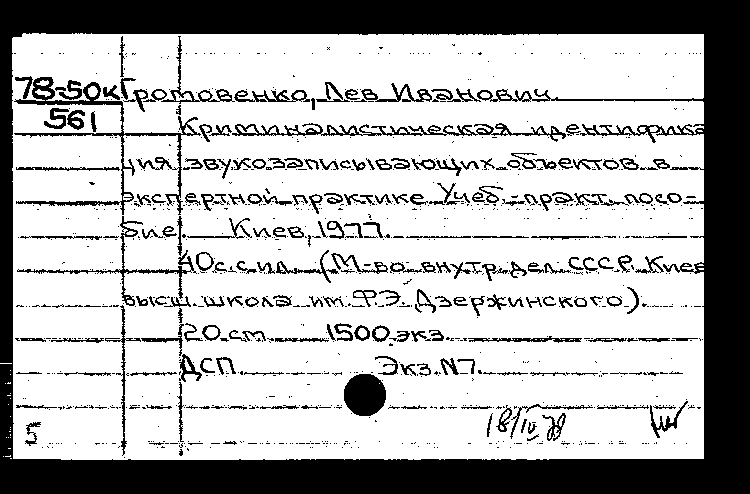 78-50к Громовенко, Лев Иванович.
561
Криминалистическая идентифика
ция звукозаписывающих объектов в
экспертной практике Учеб.-практ. посо-
бие. Киев, 1977.
40с. с ил. (М-во внутр. дел СССР. Киев
высш. школа им. Ф.Э. Дзержинского).
20 см 1500 экз.
ДСП. Экз. N7.
18/IV 78
5